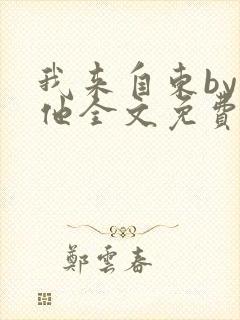 我来自东by
他全文免費
鄭雲春